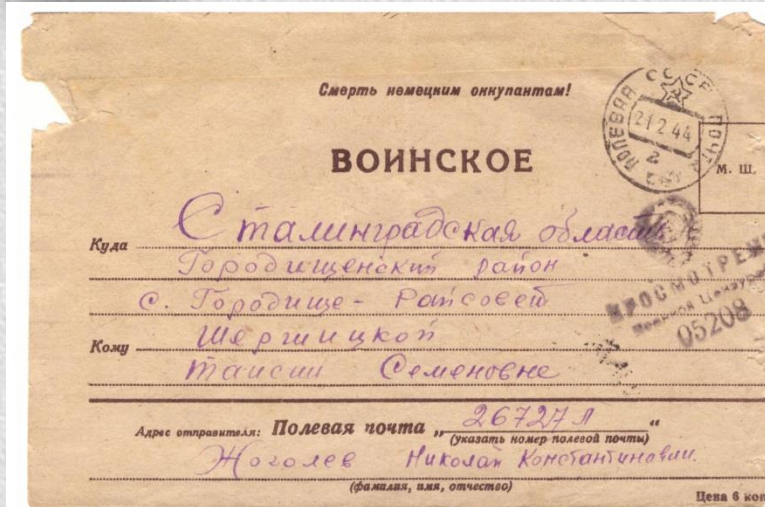 Смерть немецким оккупантам!
СССР
ПОЛЕВАЯ ПОЧТА
21 2 44
2
ВОИНСКОЕ
м. ш.
Куда Сталинградская область
Городищенский район
с. Городище - Райсовет
ПРОСМОТРЕН
Военной Цензур
05208
Кому
Таисии Семеновне
Адрес отправителя: Полевая почта „26727 Л“
(указать номер полевой почты)
Жоголев Николай Константинович.
(фамилия, имя, отчество)
Цена 6 коп